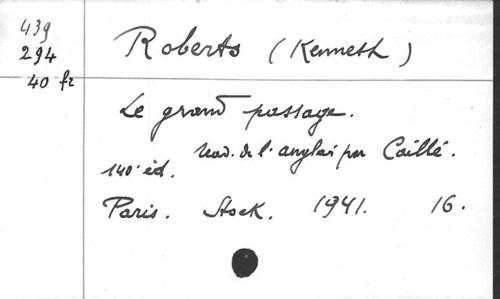 439
294
40 fr
Roberts (Kenneth)
Le grand passage.
trad. de l'anglais par Caillé.
140e éd.
Paris. Stock. 1941. 16.